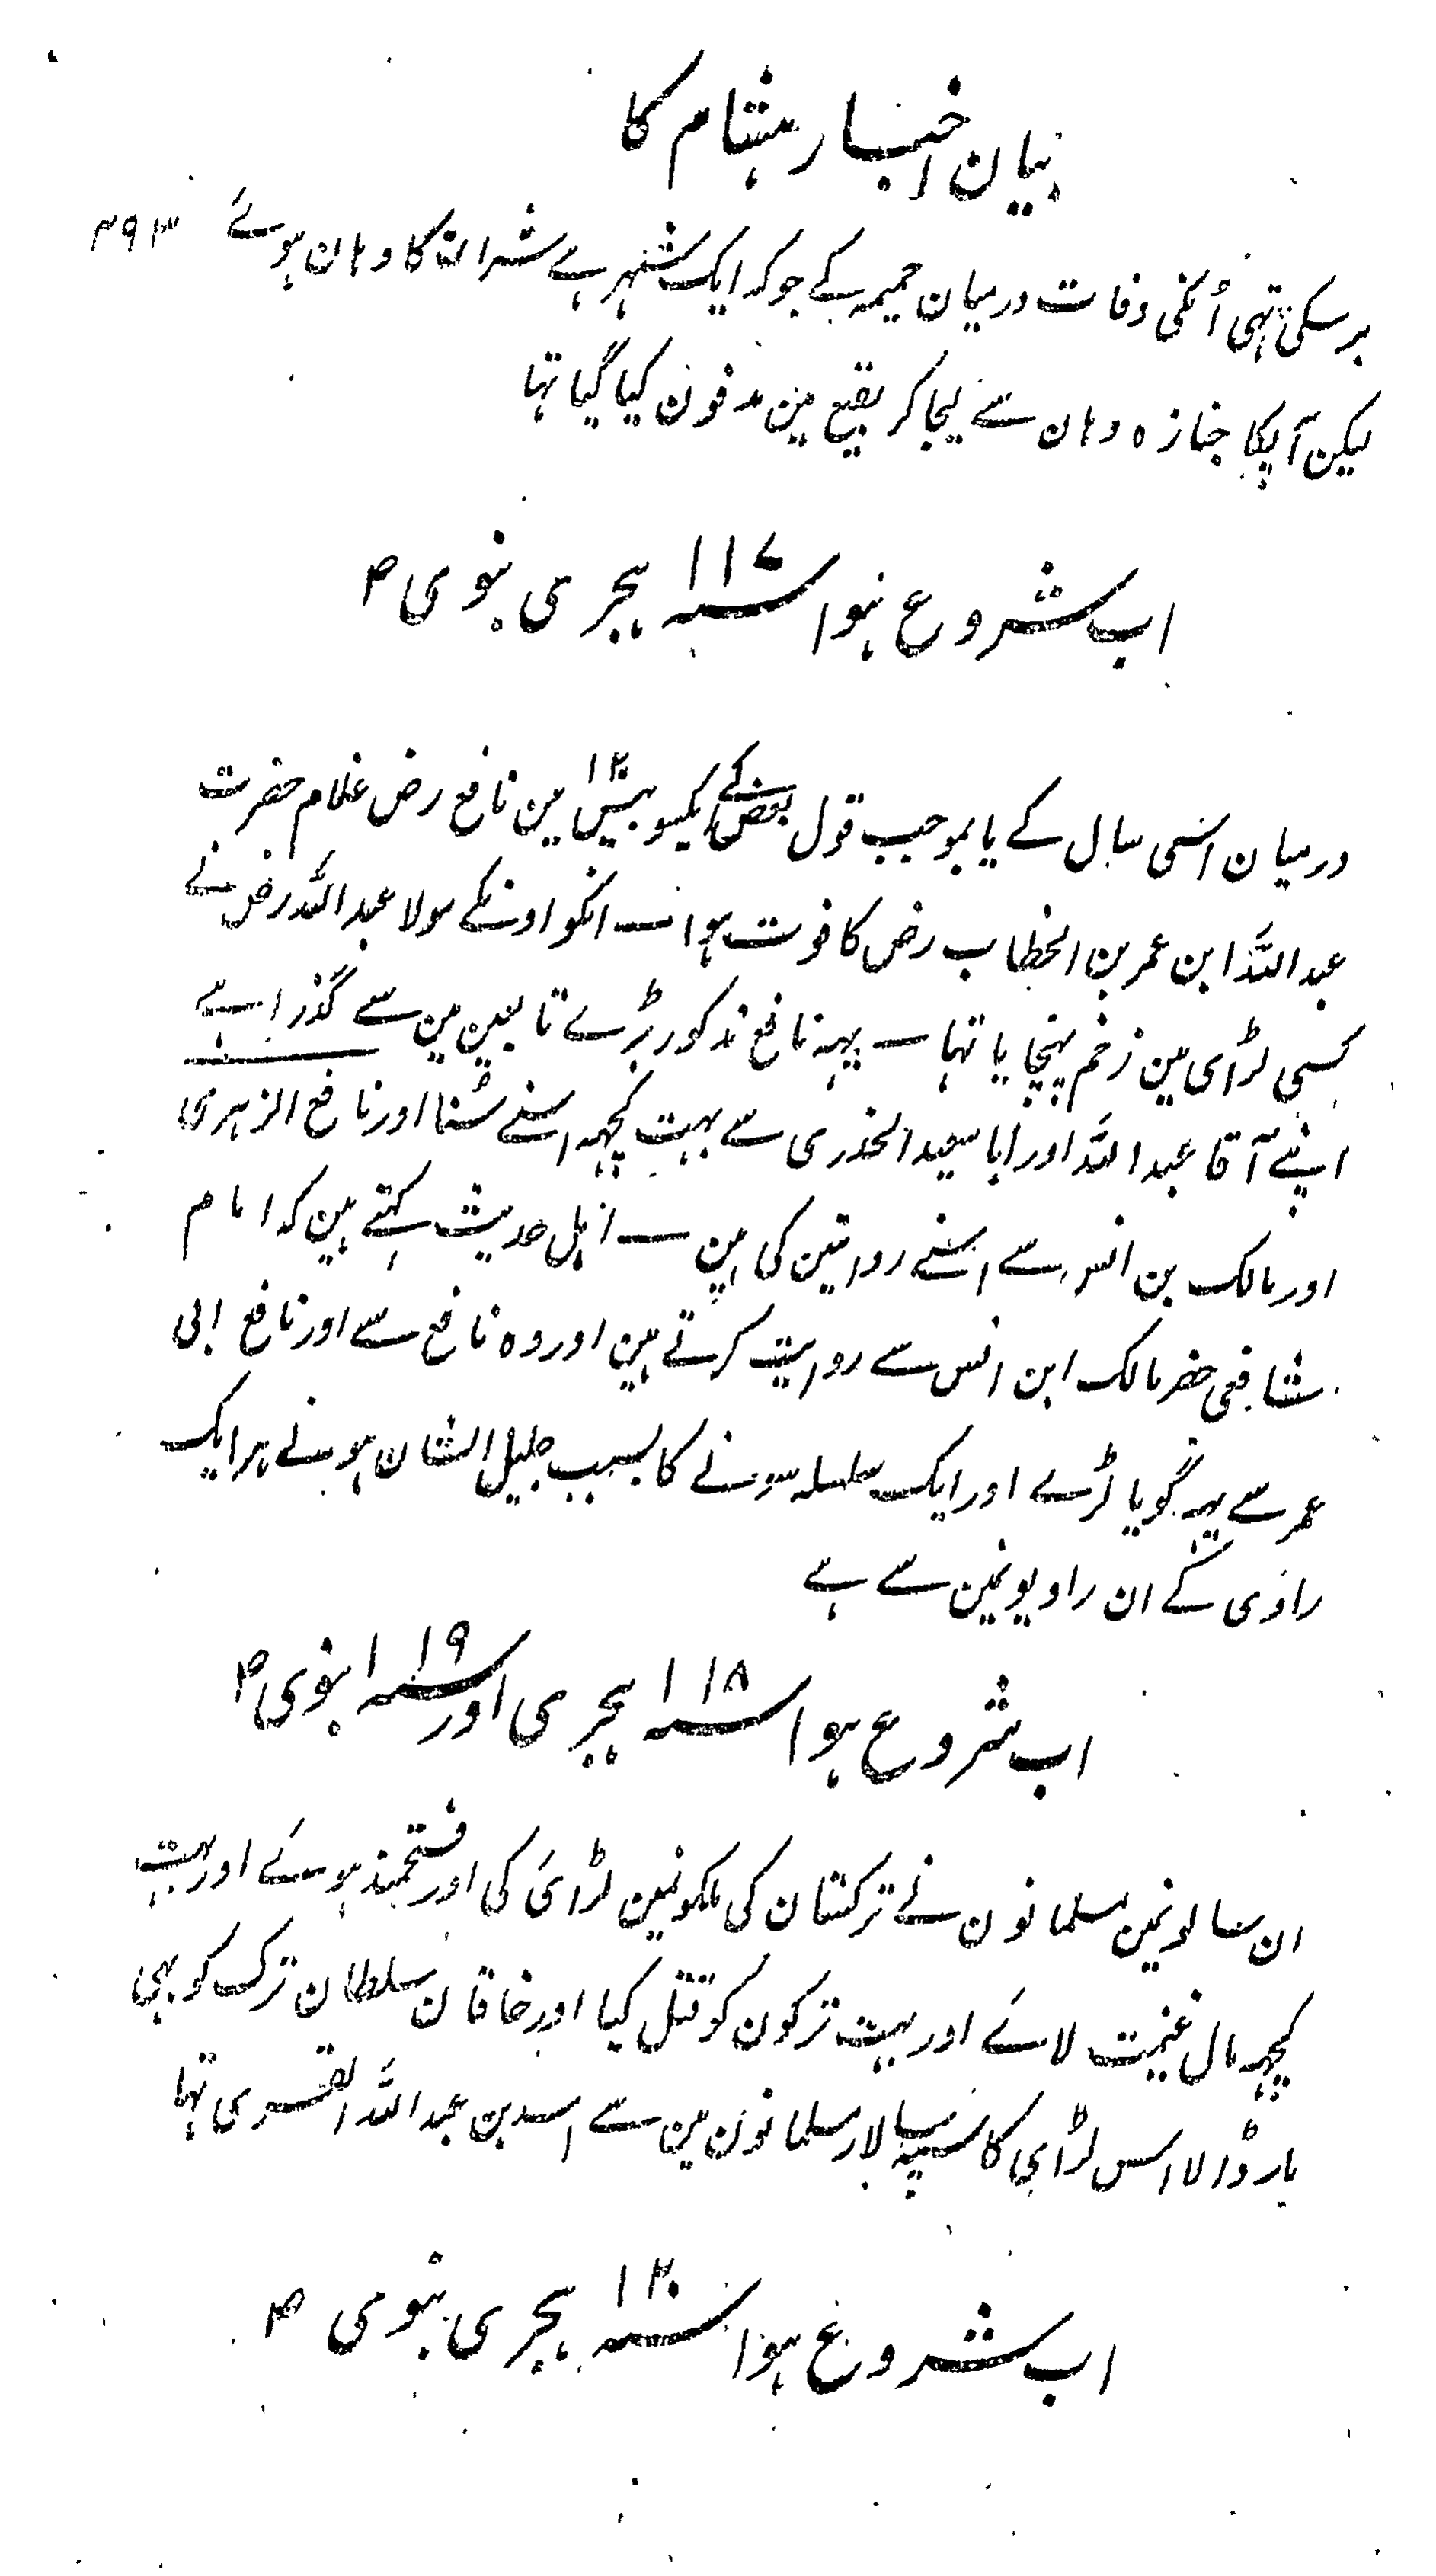 بیان اخبار ہشام کا
۳۹۳
برسکی تہی اُنکی وفات درمیان حمیمہ کے جو کہ ایک شہر ہے شراۃ کا وہان ہوئے
لیکن آپکا جنازہ وہان سے لیجا کر بقیع مین مدفون کیا گیا تہا
اب شروع ہوا سنہ ۱۱۷ ہجری نبوی ص
درمیان اسی سال کے یا بموجب قول بعض کے ایکسو بیس ۱۲۰ مین نافع رض غلام حضرت
عبد اللہ ابن عمر بن الخطاب رض کا فوت ہوا — انکو اونکے مولا عبد اللہ رض نے
کسی لڑای مین زخم پہنچایا تہا — یہہ نافع مذکور بڑے تابعین مین سے گذرا ہے
اپنے آقا عبد اللہ اور ابا سعید الخدری سے بہت کچہہ اسنے سُنا اور نافع الزہری
اور مالک بن انس سے اسنے روایتین کی ہین — اہل حدیث کہتے ہین کہ امام
شافعی حضر مالک ابن انس سے روایت کرتے ہین اور وہ نافع سے اور نافع ابی
عمر سے یہہ گویا لڑے اور ایک سلسلہ سونے کا بسبب جلیل الشان ہونے ہر ایک
راوی کے ان راویونمین سے ہے
اب شروع ہوا سنہ ۱۱۸ ہجری اور سنہ ۱۱۹ نبوی ص
ان سالونمین مسلمانون نے ترکستان کی ملکونمین لڑائی کی اور فتحمند ہوئے اور بہت
کچہہ مال غنیمت لائے اور بہت ترکون کو قتل کیا اور خاقان سلطان ترک کو بہی
مار ڈالا اس لڑای کا سپہ سالار مسلمانون مین سے اسد بن عبد اللہ القسری تہا
اب شروع ہوا سنہ ۱۲۰ ہجری نبوی ص